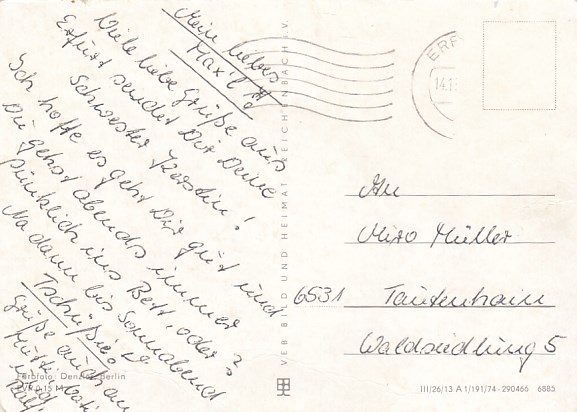 Mein liebes
Maxil!!
Viele liebe Grüße aus
Erfurt sendet Dir Deine
Schwester Kerstin!
Ich hoffe es geht Dir gut und
Du gehst abends immer
pünktlich ins Bett, oder?
Na dann bis Sonnabend
Tschüßie
Grüße auch an
Mutti,
VEB BILD UND HEIMAT REICHENBACH i.V.
ERF
14.1
An
Miro Müller
6531 Tautenhain
Waldsiedlung 5
Farbfoto: Berlin
EVP 0,15 M
III/26/13 A 1/191/74-290466 6885